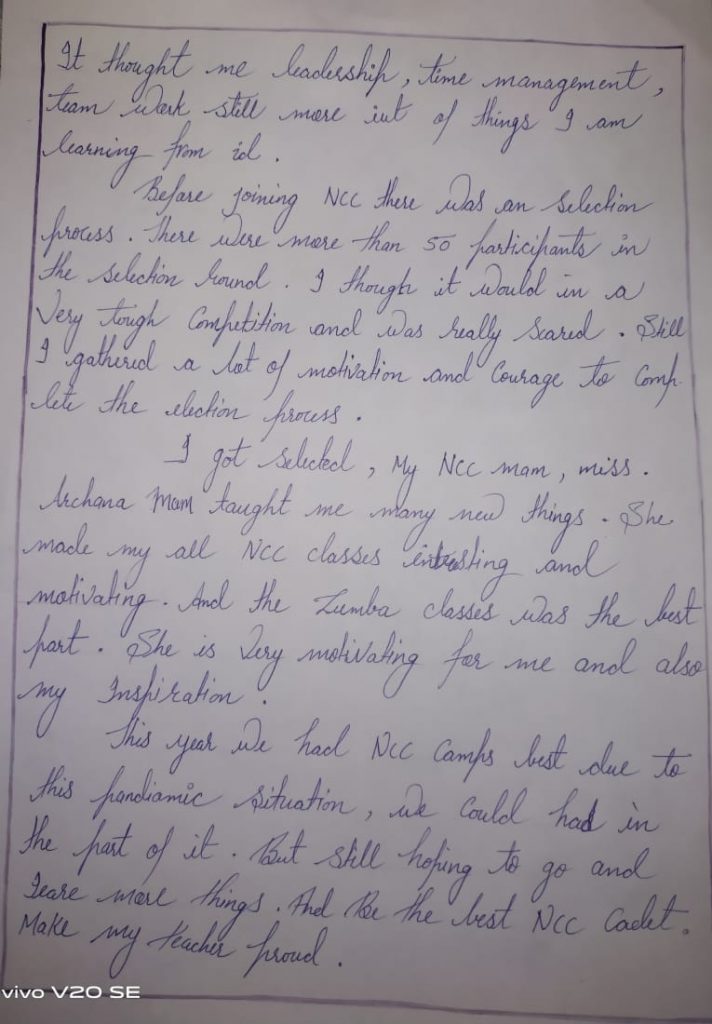 It thought me leadership, time management,
team work still more iut of things I am
learning from id.
Before joining NCC there was an selection
process. There were more than 50 participants in
the selection round. I though it would in a
Very tough Competition and was really scared. Still
I gathered a lot of motivation and Courage to Comp-
lete the election process.
I got selected, My NCC mam, miss.
Archana Mam taught me many new things. She
made my all NCC classes intresting and
motivating. And the Zumba classes was the best
part. She is Very motivating for me and also
my Inspiration.
This year we had NCC Camps best due to
this pandiamic situation, we Could had in
the part of it. But still hoping to go and
leare more things. And Be the best NCC Cadet.
Make my teacher proud.
vivo V20 SE